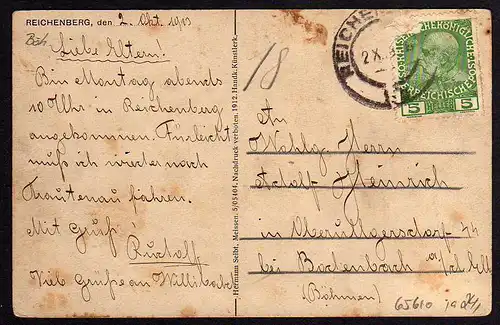 REICHENBERG, den 2. Okt. 1913
Böh
Liebe Eltern!
Bin Montag abends
10 Uhr in Reichenberg
angekommen. Vielleicht
muß ich wieder nach
Trautenau fahren.
Mit Gruß
Rudolf
Viele Grüße an Willi
Hermann Seibt, Meissen. 5/05404. Nachdruck verboten. 1912. Handk. Künstlerk.
18
REICHE
2 X
5 HELLER 5
An
Wohlg. Herrn
Adolf Heinrich
in Oberulgersdorf 44
bei Bodenbach a/
(Böhmen)
65610